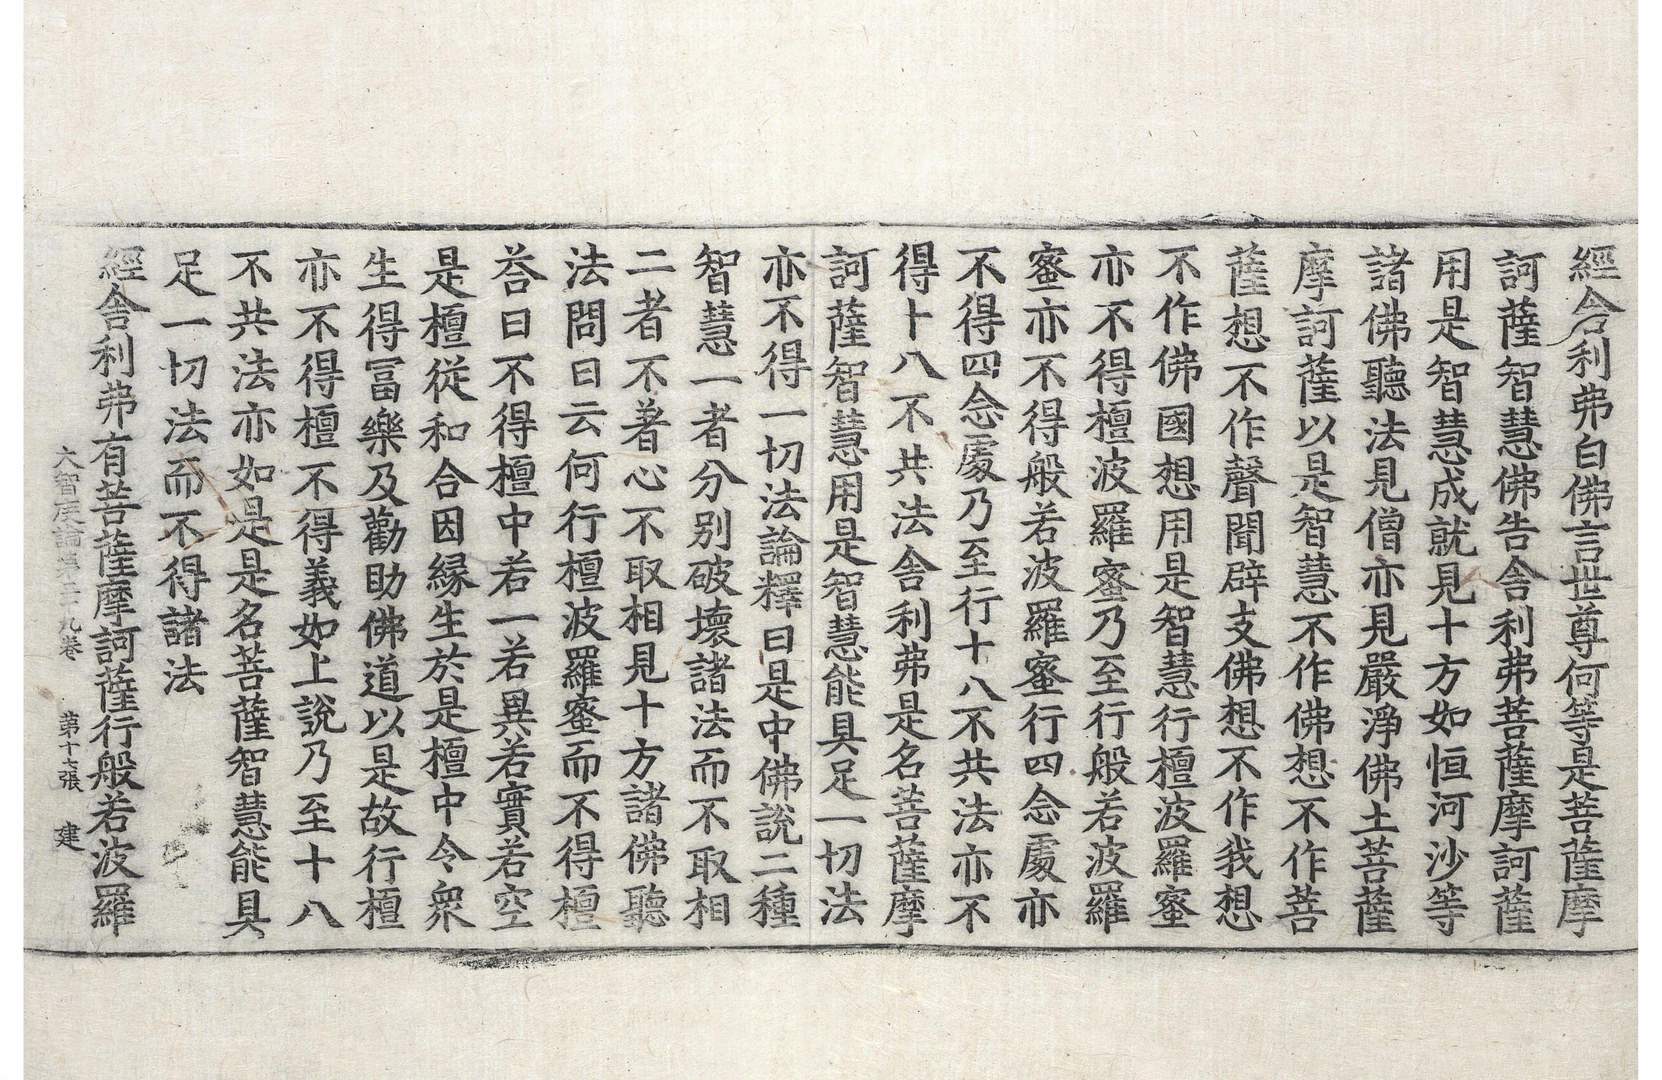 經舍利弗白佛言世尊何等是菩薩摩
訶薩智慧佛告舍利弗菩薩摩訶薩
用是智慧成就見十方如恒河沙等
諸佛聽法見僧亦見嚴淨佛土菩薩
摩訶薩以是智慧不作佛想不作菩
薩想不作聲聞辟支佛想不作我想
不作佛國想用是智慧行檀波羅蜜
亦不得檀波羅蜜乃至行般若波羅
蜜亦不得般若波羅蜜行四念處亦
不得四念處乃至行十八不共法亦不
得十八不共法舍利弗是名菩薩摩
訶薩智慧用是智慧能具足一切法
亦不得一切法論釋曰是中佛說二種
智慧一者分別破壞諸法而不取相
二者不著心不取相見十方諸佛聽
法問曰云何行檀波羅蜜而不得檀
荅曰不得檀中若一若異若實若空
是檀從和合因緣生於是檀中令衆
生得冨樂及勸助佛道以是故行檀
亦不得檀不得義如上說乃至十八
不共法亦如是是名菩薩智慧能具
足一切法而不得諸法
經舍利弗有菩薩摩訶薩行般若波羅
大智度論第三十九卷 第十七張 建